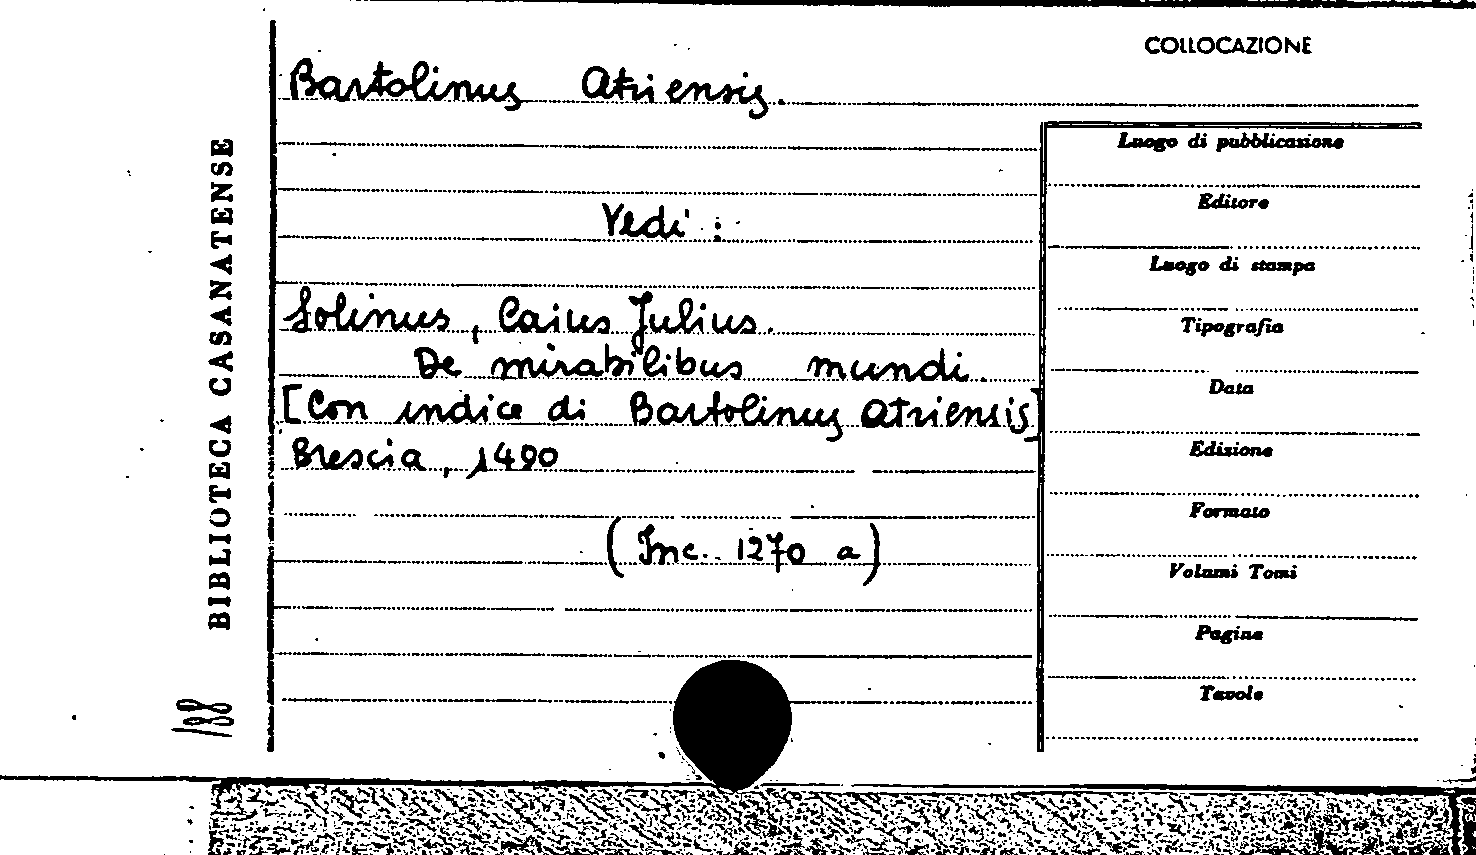 COLLOCAZIONE
Bartolinus Atriensis.
Vedi:
Solinus, Caius Julius.
De mirabilibus mundi.
[Con indice di Bartolinus Atriensis]
Brescia, 1490
(Inc. 1270 a)
Luogo di pubblicazione
Editore
Luogo di stampa
Tipografia
Data
Edizione
Formato
Volumi Tomi
Pagine
Tavole
BIBLIOTECA CASANATENSE
188